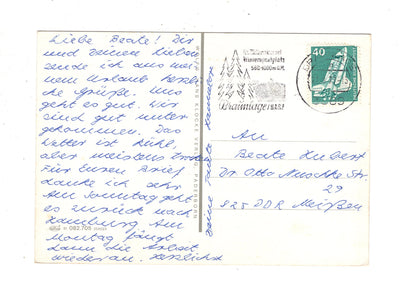 Liebe Beate! Dir
und deinen Lieben
sende ich aus mei-
nem Urlaub herzli-
che Grüße. Uns
geht es gut. Wir
sind gut unter
gekommen. Das
Wetter ist kühl,
aber meistens trocken
Für Euren Brief
danke ich sehr
Am Sonntag geht
es zurück nach
Hamburg. Am
Montag fängt
dann die Arbeit
wieder an. Herzlichst
deine Tante
Braunlage
40
An
Beate Hubert
Dr. Otto Nuschke Str.
29
825 DDR Meißen